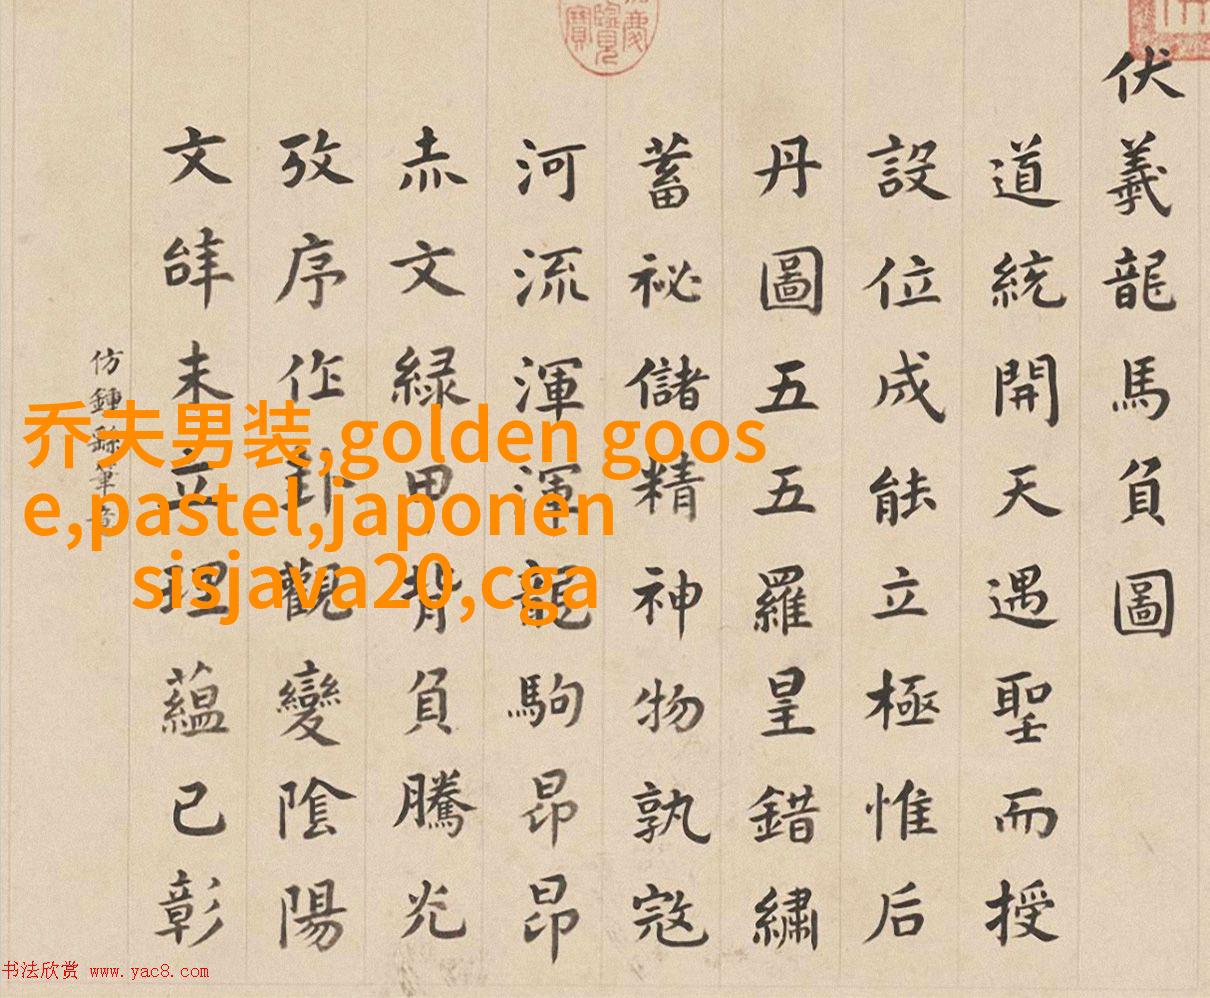 伏羲龍馬負圖
道統開天遇聖而授
設位成能立極惟后
丹圖五五羅皇錯繡
蓄祕儲精神物孰寇
河流渾渾龍駒昂昂
赤文綠甲背負騰光
攷序作卦觀變陰陽
文辝未立理蘊已彰
仿鍾繇筆意
乔夫男装,golden goos
e,pastel,japonen
sisjava20,cga
书法欣赏 www.yac8.com